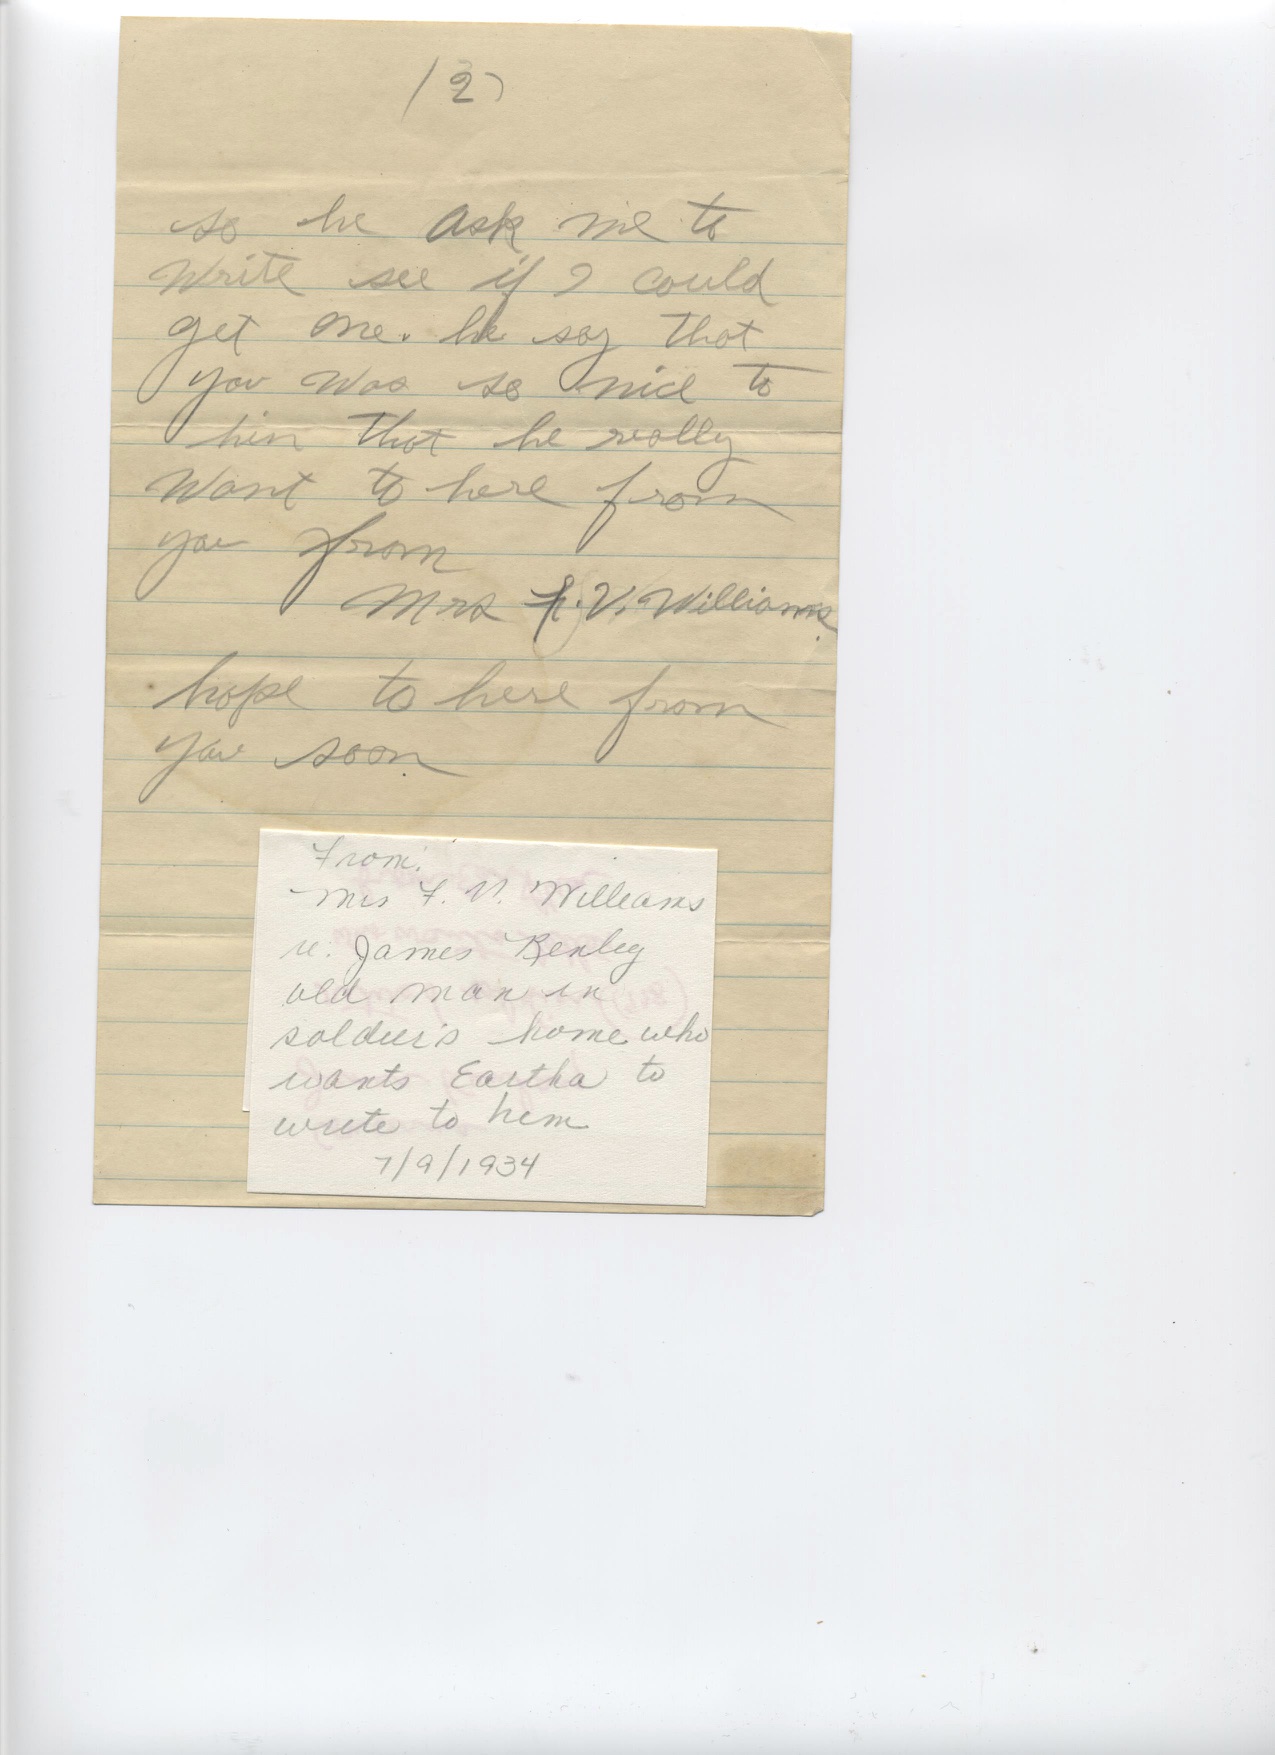 (2)
so he ask me to
Write see if I could
get one. he say that
you was so nice to
him that he really
Want to here from
you from
Mrs F. V. Williams
hope to here from
you soon.
From:
Mrs F. V. Williams
re: James Renley
old man in
soldier's home who
wants Eartha to
write to him
7/9/1934